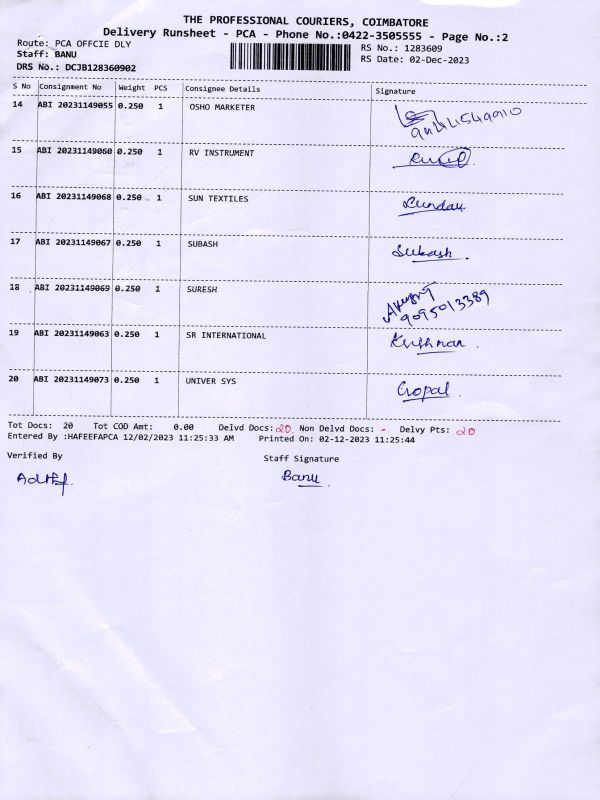 THE PROFESSIONAL COURIERS, COIMBATORE
Delivery Runsheet - PCA - Phone No.:0422-3505555 - Page No.:2
Route: PCA OFFCIE DLY RS No.: 1283609
Staff: BANU RS Date: 02-Dec-2023
DRS No.: DCJB128360902
S No Consignment No Weight PCS Consignee Details Signature
14 ABI 20231149055 0.250 1 OSHO MARKETER
15 ABI 20231149060 0.250 1 RV INSTRUMENT
16 ABI 20231149068 0.250 1 SUN TEXTILES
17 ABI 20231149067 0.250 1 SUBASH Subash
18 ABI 20231149069 0.250 1 SURESH
9095013389
19 ABI 20231149063 0.250 1 SR INTERNATIONAL Krishnan
20 ABI 20231149073 0.250 1 UNIVER SYS Gopal
Tot Docs: 20 Tot COD Amt: 0.00 Delvd Docs: 20 Non Delvd Docs: - Delvy Pts: 20
Entered By :HAFEEFAPCA 12/02/2023 11:25:33 AM Printed On: 02-12-2023 11:25:44
Verified By Staff Signature
Banu